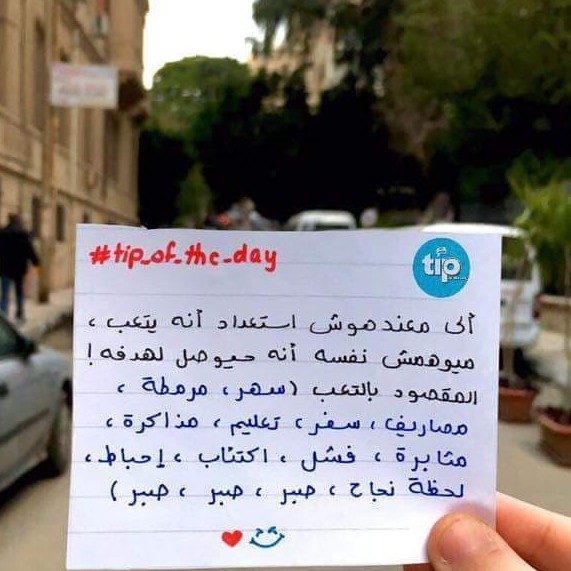 #tip_of_the_day
tip
ألى معندهوش استعداد أنه يتعب ،
ميوهمش نفسه أنه حيوصل لهدفه !
المقصود بالتعب (سهر ، مرمطة ،
مصاريف ، سفر ، تعليم ، مذاكرة ،
مثابرة ، فشل ، اكتئاب ، إحباط ،
لحظة نجاح ، صبر ، صبر ، صبر )